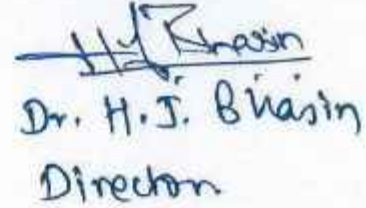 H J Bhasin
Dr. H.J. Bhasin
Director